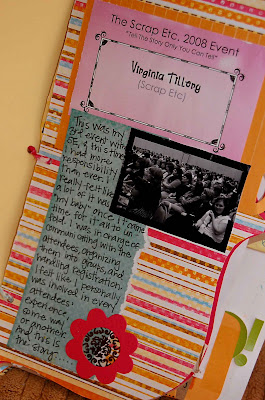 The Scrap Etc. 2008 Event
"Tell The Story Only You Can Tell"
Virginia Tillery
(Scrap Etc)
This was my
3rd event with
SE, & this time
I had more
responsibility
than ever. I
really felt like
a lot of it was
my baby once I came
time for it all to un-
fold. I was in charge of
communing with the
attendees, organizing
them into groups, and
handling registration.
I felt like I personally
was involved in every
attendees'
experience,
some way
or another.
And this is
the story...